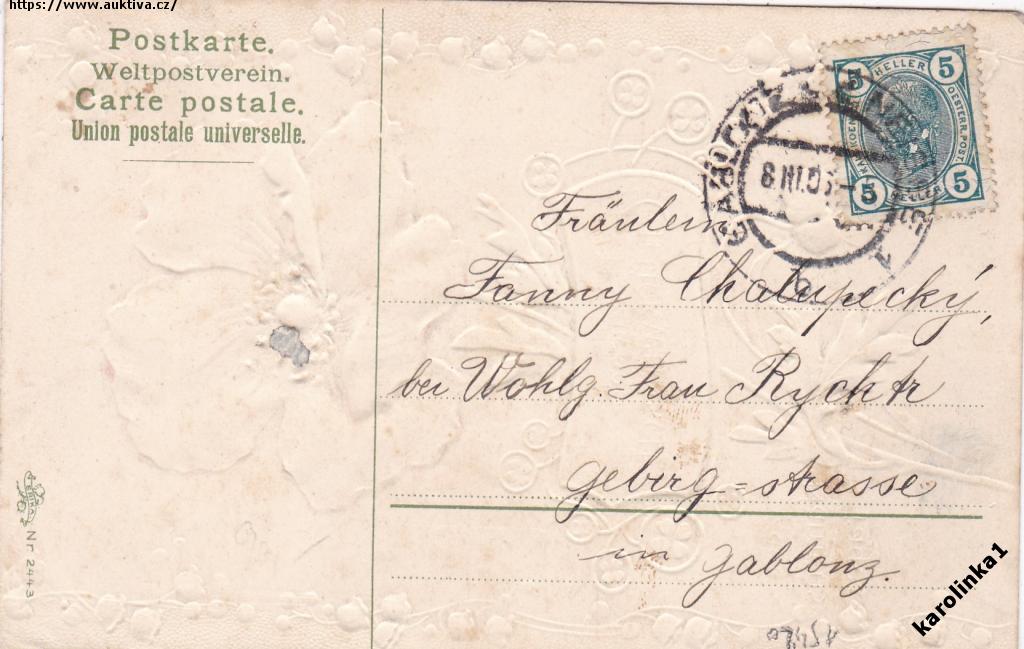 https://www.auktiva.cz/
Postkarte.
Weltpostverein.
Carte postale.
Union postale universelle.
5 HELLER 5
OESTERR. POST
5 HELLER 5
8 III 0
Fräulein
Fanny Chalupecký,
bei Wohlg. Frau Rychtr
gebirg=strasse
in Gablonz.
Nr. 2443
karolinka1